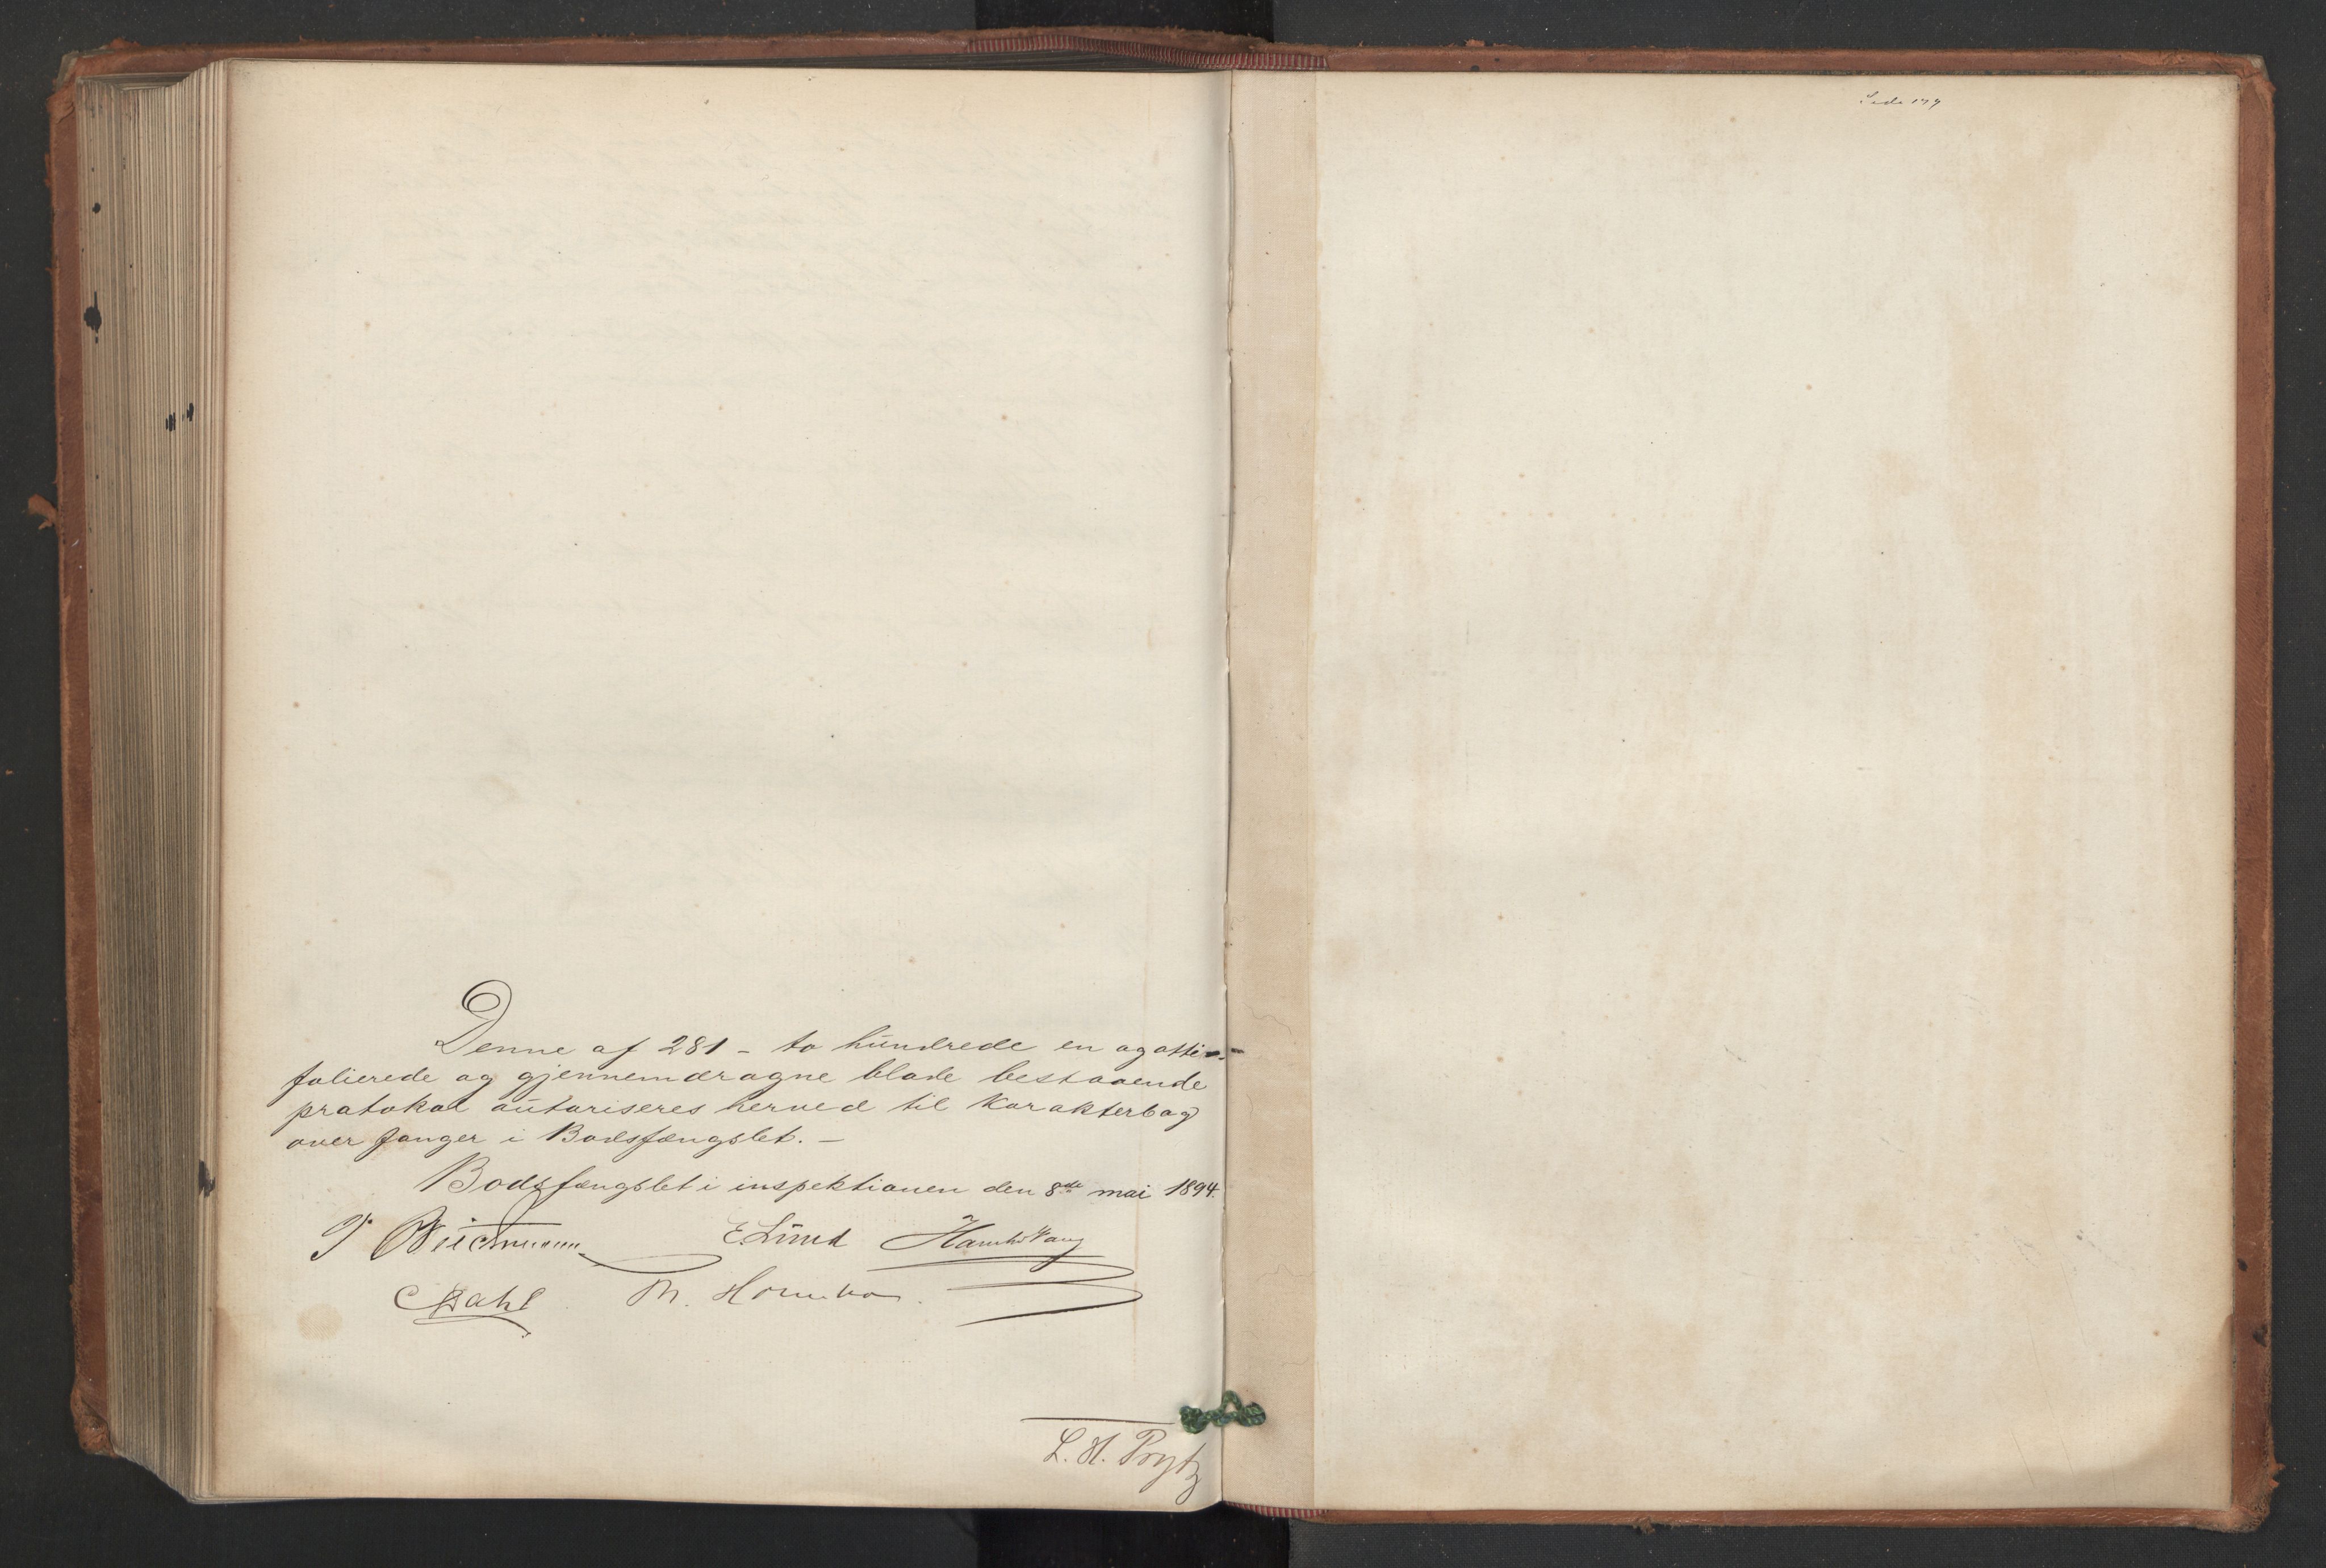 Denne af 281 - to hundrede en og otti -
folierede og gjennemdragne blade bestaaende
protokol autoriseres herved til Karakterbog
over Fanger i Bodsfængslet. -
Bodsfængslet i inspektionen den 8de mai 1894.
E. Lund
C Dahl
L. H. Prytz